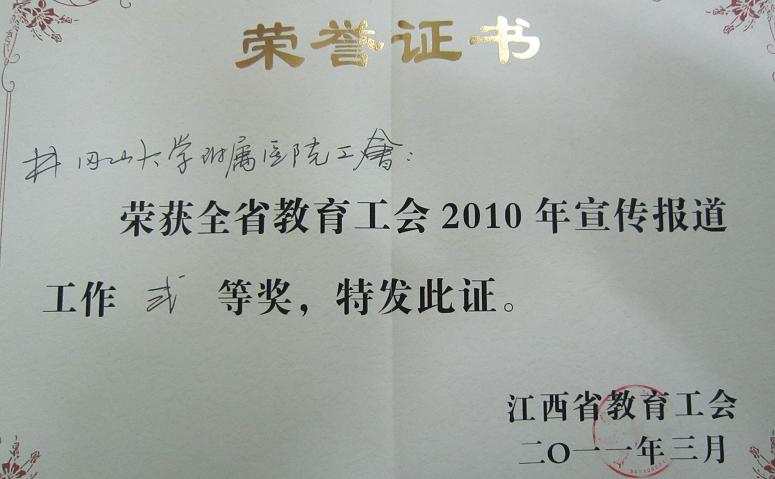 荣誉证书
井冈山大学附属医院工會：
荣获全省教育工会2010年宣传报道
工作 弍 等奖，特发此证。
江西省教育工会
二〇一一年三月